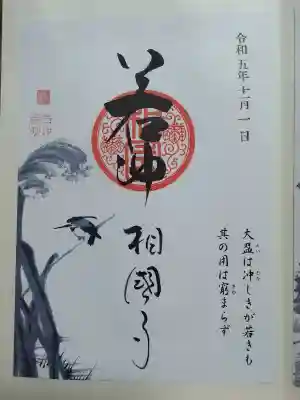 令和五年十一月一日
若冲
相國寺
大盈は冲しきが若きも
其の用は窮まらず